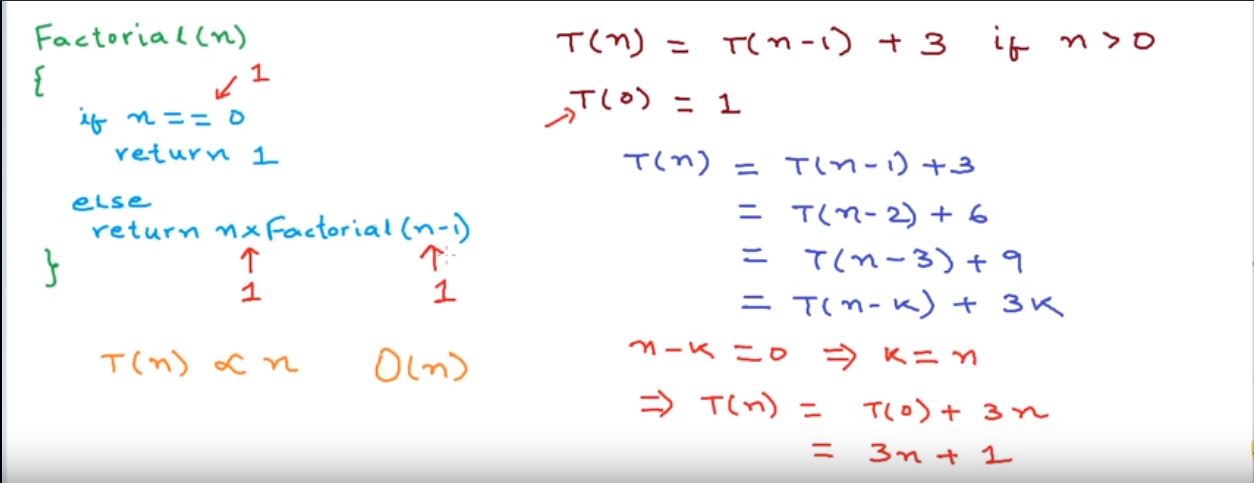 Factorial(n)
{
1
if n == 0
return 1
else
return n×Factorial(n-1)
}
↑ ↑
1 1
T(n) ∝ n O(n)
T(n) = T(n-1) + 3 if n > 0
→T(0) = 1
T(n) = T(n-1) + 3
= T(n-2) + 6
= T(n-3) + 9
= T(n-k) + 3k
n-k = 0 ⇒ k = n
⇒ T(n) = T(0) + 3n
= 3n + 1